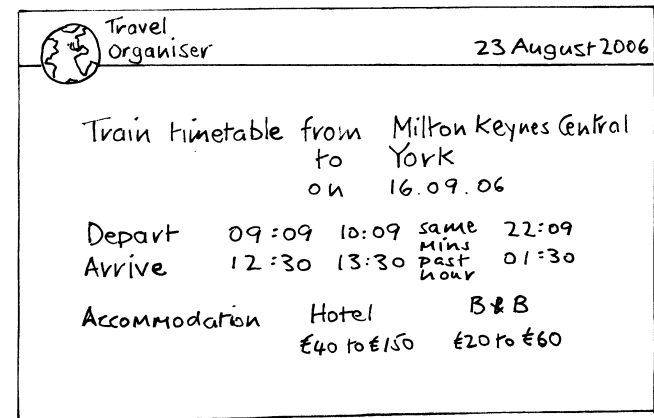 Travel
Organiser
23 August 2006
Train timetable from Milton Keynes Central
to York
on 16.09.06
Depart 09:09 10:09 same mins past hour 22:09
Arrive 12:30 13:30 01:30
Accommodation Hotel B & B
£40 to £150 £20 to £60